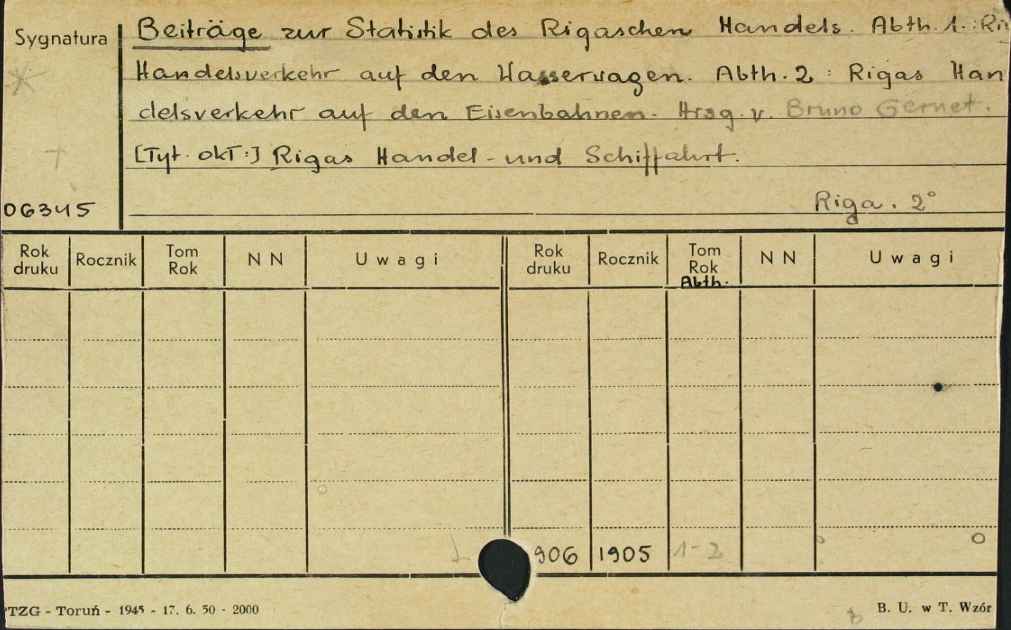 Sygnatura
Beiträge zur Statistik des Rigaschen Handels. Abth. 1.: Ri
Handelsverkehr auf den Wasserwagen. Abth. 2: Rigas Han
delsverkehr auf den Eisenbahnen. Hrsg. v. Bruno Gernet.
[Tyt. okł:] Rigas Handel- und Schiffahrt.
06345 Riga. 2°
Rok druku Rocznik Tom Rok NN Uwagi Rok druku Rocznik Tom Rok Abth. NN Uwagi
906 1905 1-2
TZG - Toruń - 1945 - 17. 6. 50 - 2000 B. U. w T. Wzór